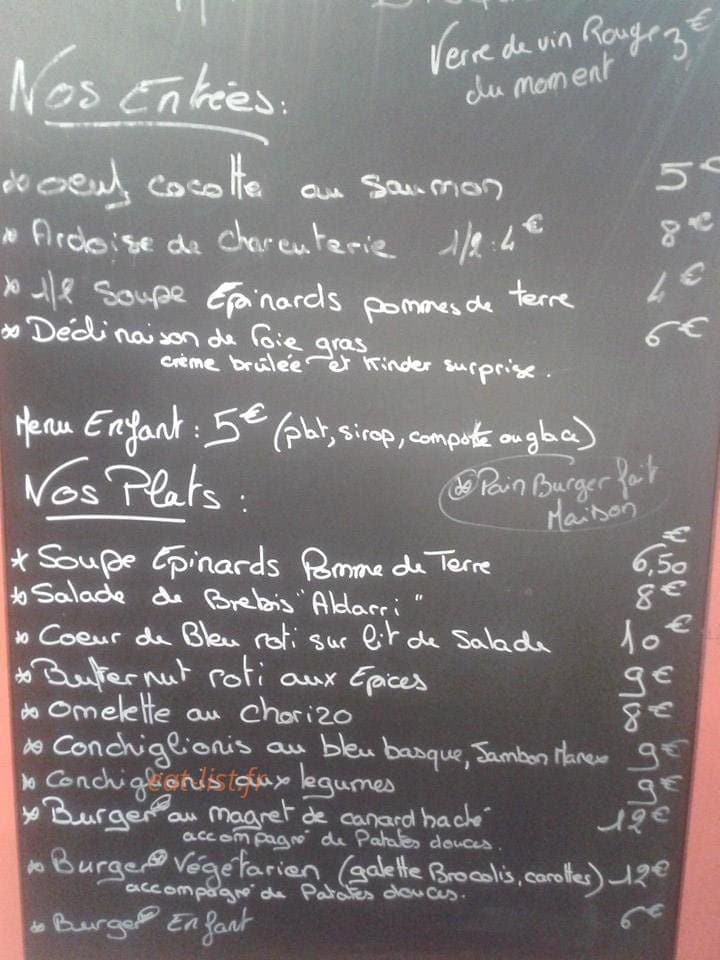 Verre de vin Rouge 3€
du moment
Nos Entrées :
oeufs cocotte au Saumon 5€
Ardoise de charcuterie 1/2 : 4€ 8€
1/2 Soupe Epinards pommes de terre 4€
Déclinaison de foie gras 6€
crème brûlée et Kinder surprise.
Menu Enfant : 5€ (plat, sirop, compote ou glace)
Nos Plats :
Pain Burger fait
Maison
* Soupe Epinards Pomme de Terre 6,50€
Salade de Brebis "Aldarri" 8€
Coeur de Bleu roti sur lit de Salade 10€
Butternut roti aux Epices 9€
Omelette au Chorizo 8€
Conchiglionis au bleu basque, Jambon 9€
Conchiglionis aux legumes 9€
eat-list.fr
Burger au magret de canard haché 12€
accompagné de Patates douces.
Burger Végétarien (galette Brocolis, carottes) 12€
accompagné de Patates douces.
Burger Enfant 6€